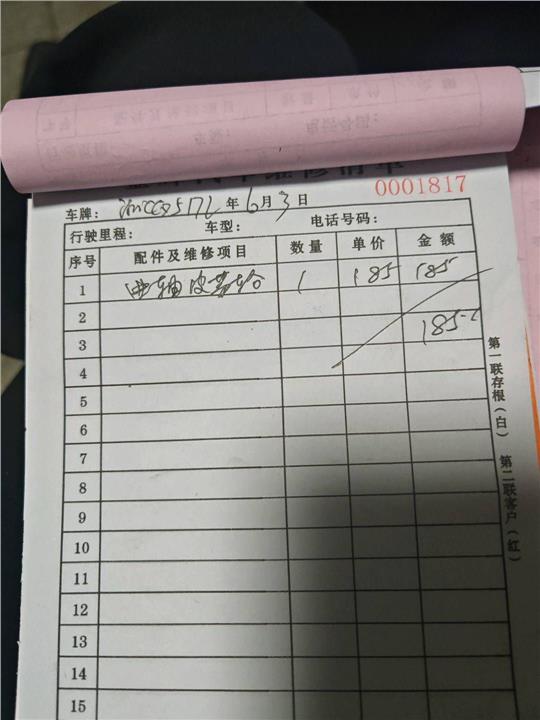 汽车维修清单
0001817
车牌： 年 6 月 3 日
行驶里程： 车型： 电话号码：
序号 配件及维修项目 数量 单价 金额
1 曲轴皮带轮 1 185 185
2
3 185
4
5
6
7
8
9
10
11
12
13
14
15
第一联存根（白） 第二联客户（红）